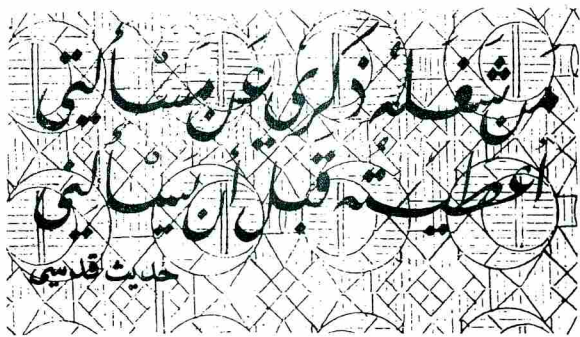 من شغله ذكري عن مسألتي
أعطيته قبل أن يسألني
حديث قدسي